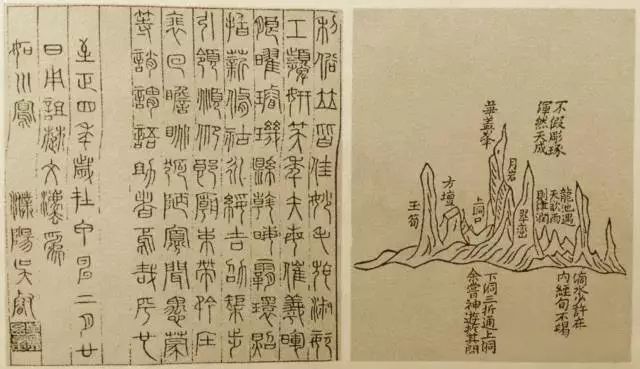 利俗竝皆佳妙毛施淑姿
工顰妍笑年矢每催羲暉
朗曜琁璣懸斡晦魄環照
指薪修祜永綏吉劭矩步
引領俯仰廊廟束帶矜莊
裵回瞻眺孤陋寡聞愚蒙
等誚謂語助者焉哉乎也
至正四年歲在申二月廿
日本詛楚文為
如川寫 濮陽吳叡
不假彫琢
渾然天成
華蓋峯
月岩
龍池遇
天欲雨
則津潤
翠巒
上洞口
方壇
玉筍
滴水少許在
內經旬不竭
下洞三折通上洞
余嘗神遊於其間